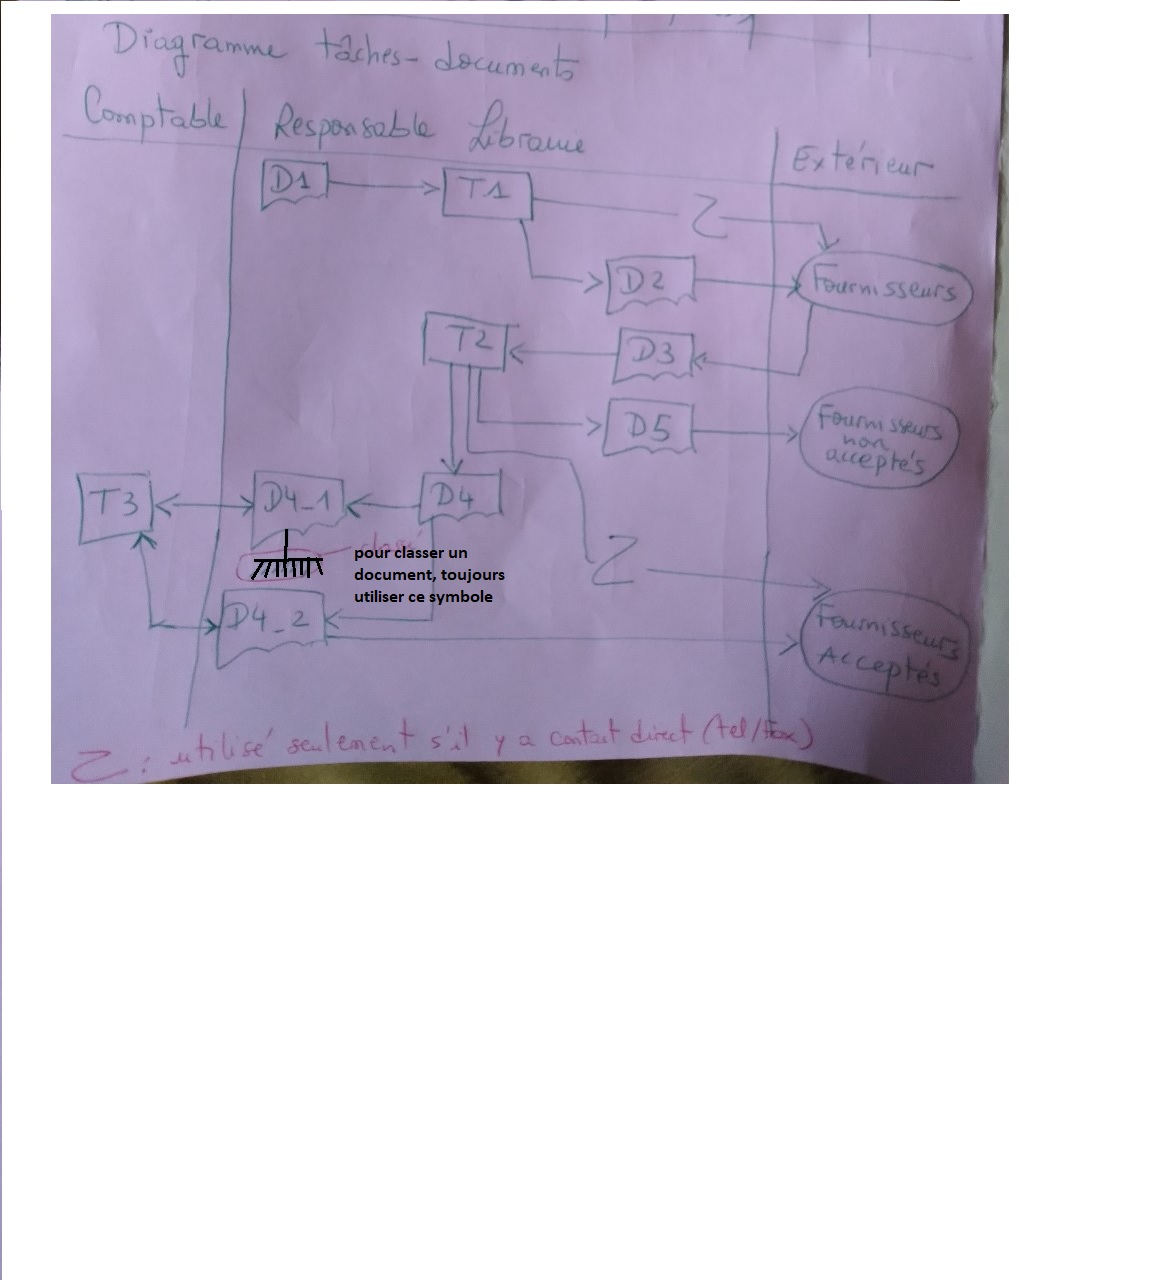 Diagramme tâches-documents
Comptable
Responsable Librairie
Extérieur
D1
T1
Z
D2
Fournisseurs
T2
D3
D5
Fournisseurs
non
acceptés
T3
D4_1
D4
classé
pour classer un
document, toujours
utiliser ce symbole
Z
D4_2
Fournisseurs
Acceptés
Z : utilisé seulement s'il y a contact direct (tel/Fax)